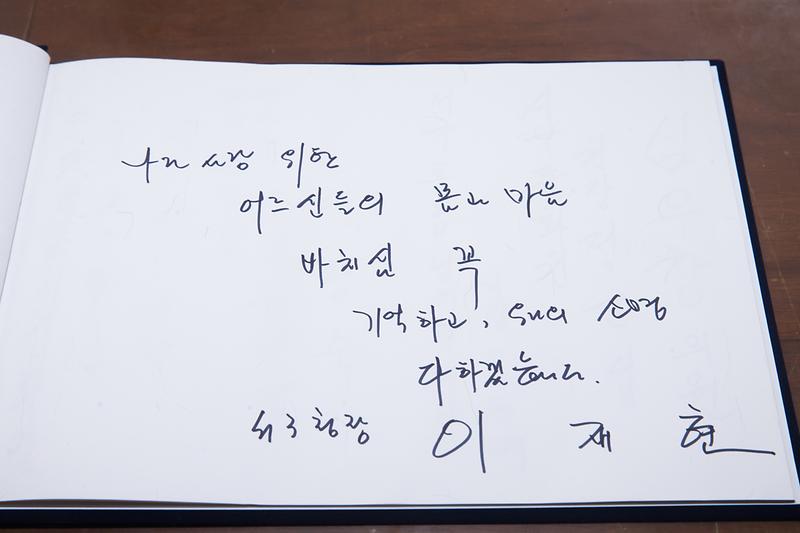 나라 사랑 위한
어르신들의 몸과 마음
바치심 꼭
기억하고, 우리의 소명
다하겠습니다.
서구청장 이재현